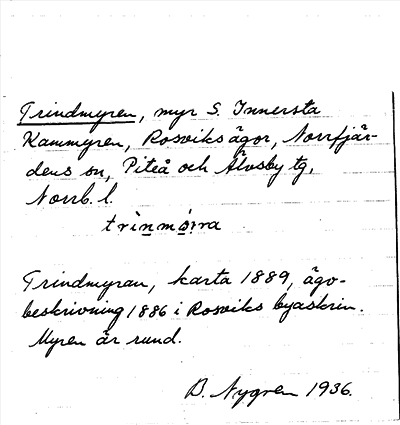 Trindmyren, myr S. Innersta
Kammyren, Rosviks ägor, Norrfjär-
dens sn, Piteå och Älvsby tg,
Norrb. l.
Trindmyran, karta 1889, ägo-
beskrivning 1886 i Rosviks byaskrin.
Myren är rund.
B. Nygren 1936.